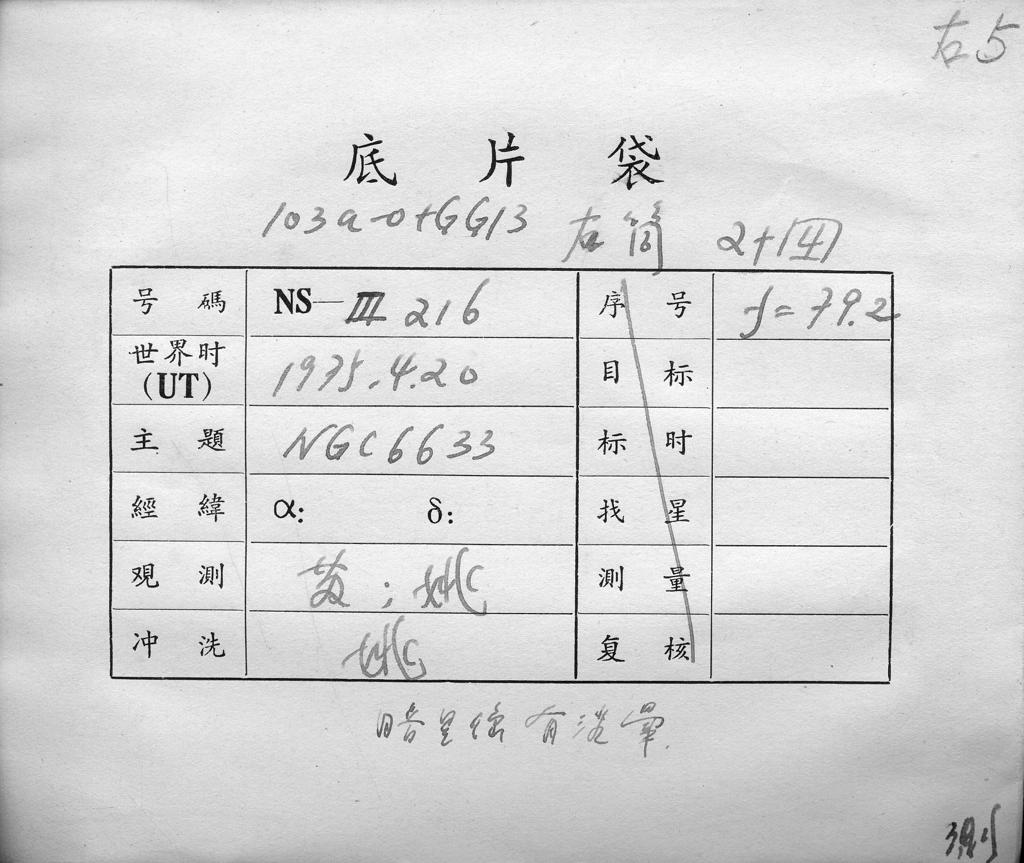 右5
底片袋
103a-o+GG13 右筒 2+四
号碼 NS—III 216 序号 f=79.2
世界时(UT) 1975.4.20 目标
主題 NGC6633 标时
經緯 α: δ: 找星
观測 黄;姚 測量
冲洗 姚 复核
暗星像有淡暈.
测